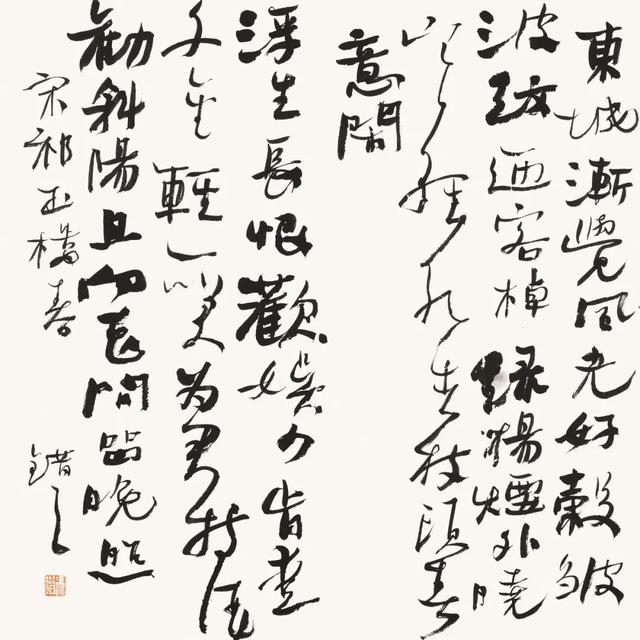 東城漸覺風光好縠皱
波紋迎客棹綠楊煙外曉
寒輕紅杏枝頭春
意鬧
浮生長恨歡娛少肯愛
千金輕一笑为君持酒
勸斜陽且向花間留晚照
宋祁玉樓春
錯之